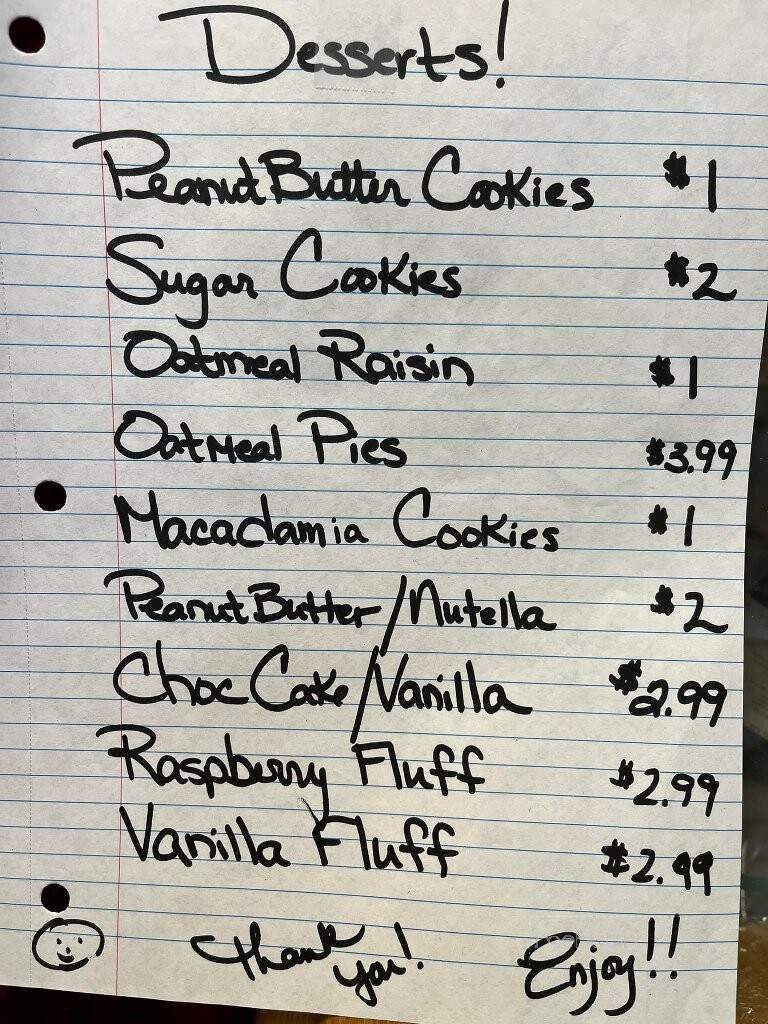 Desserts!
Peanut Butter Cookies $1
Sugar Cookies $2
Oatmeal Raisin $1
Oatmeal Pies $3.99
Macadamia Cookies $1
Peanut Butter/Nutella $2
Choc Cake/Vanilla $2.99
Raspberry Fluff $2.99
Vanilla Fluff $2.99
Thank you! Enjoy!!